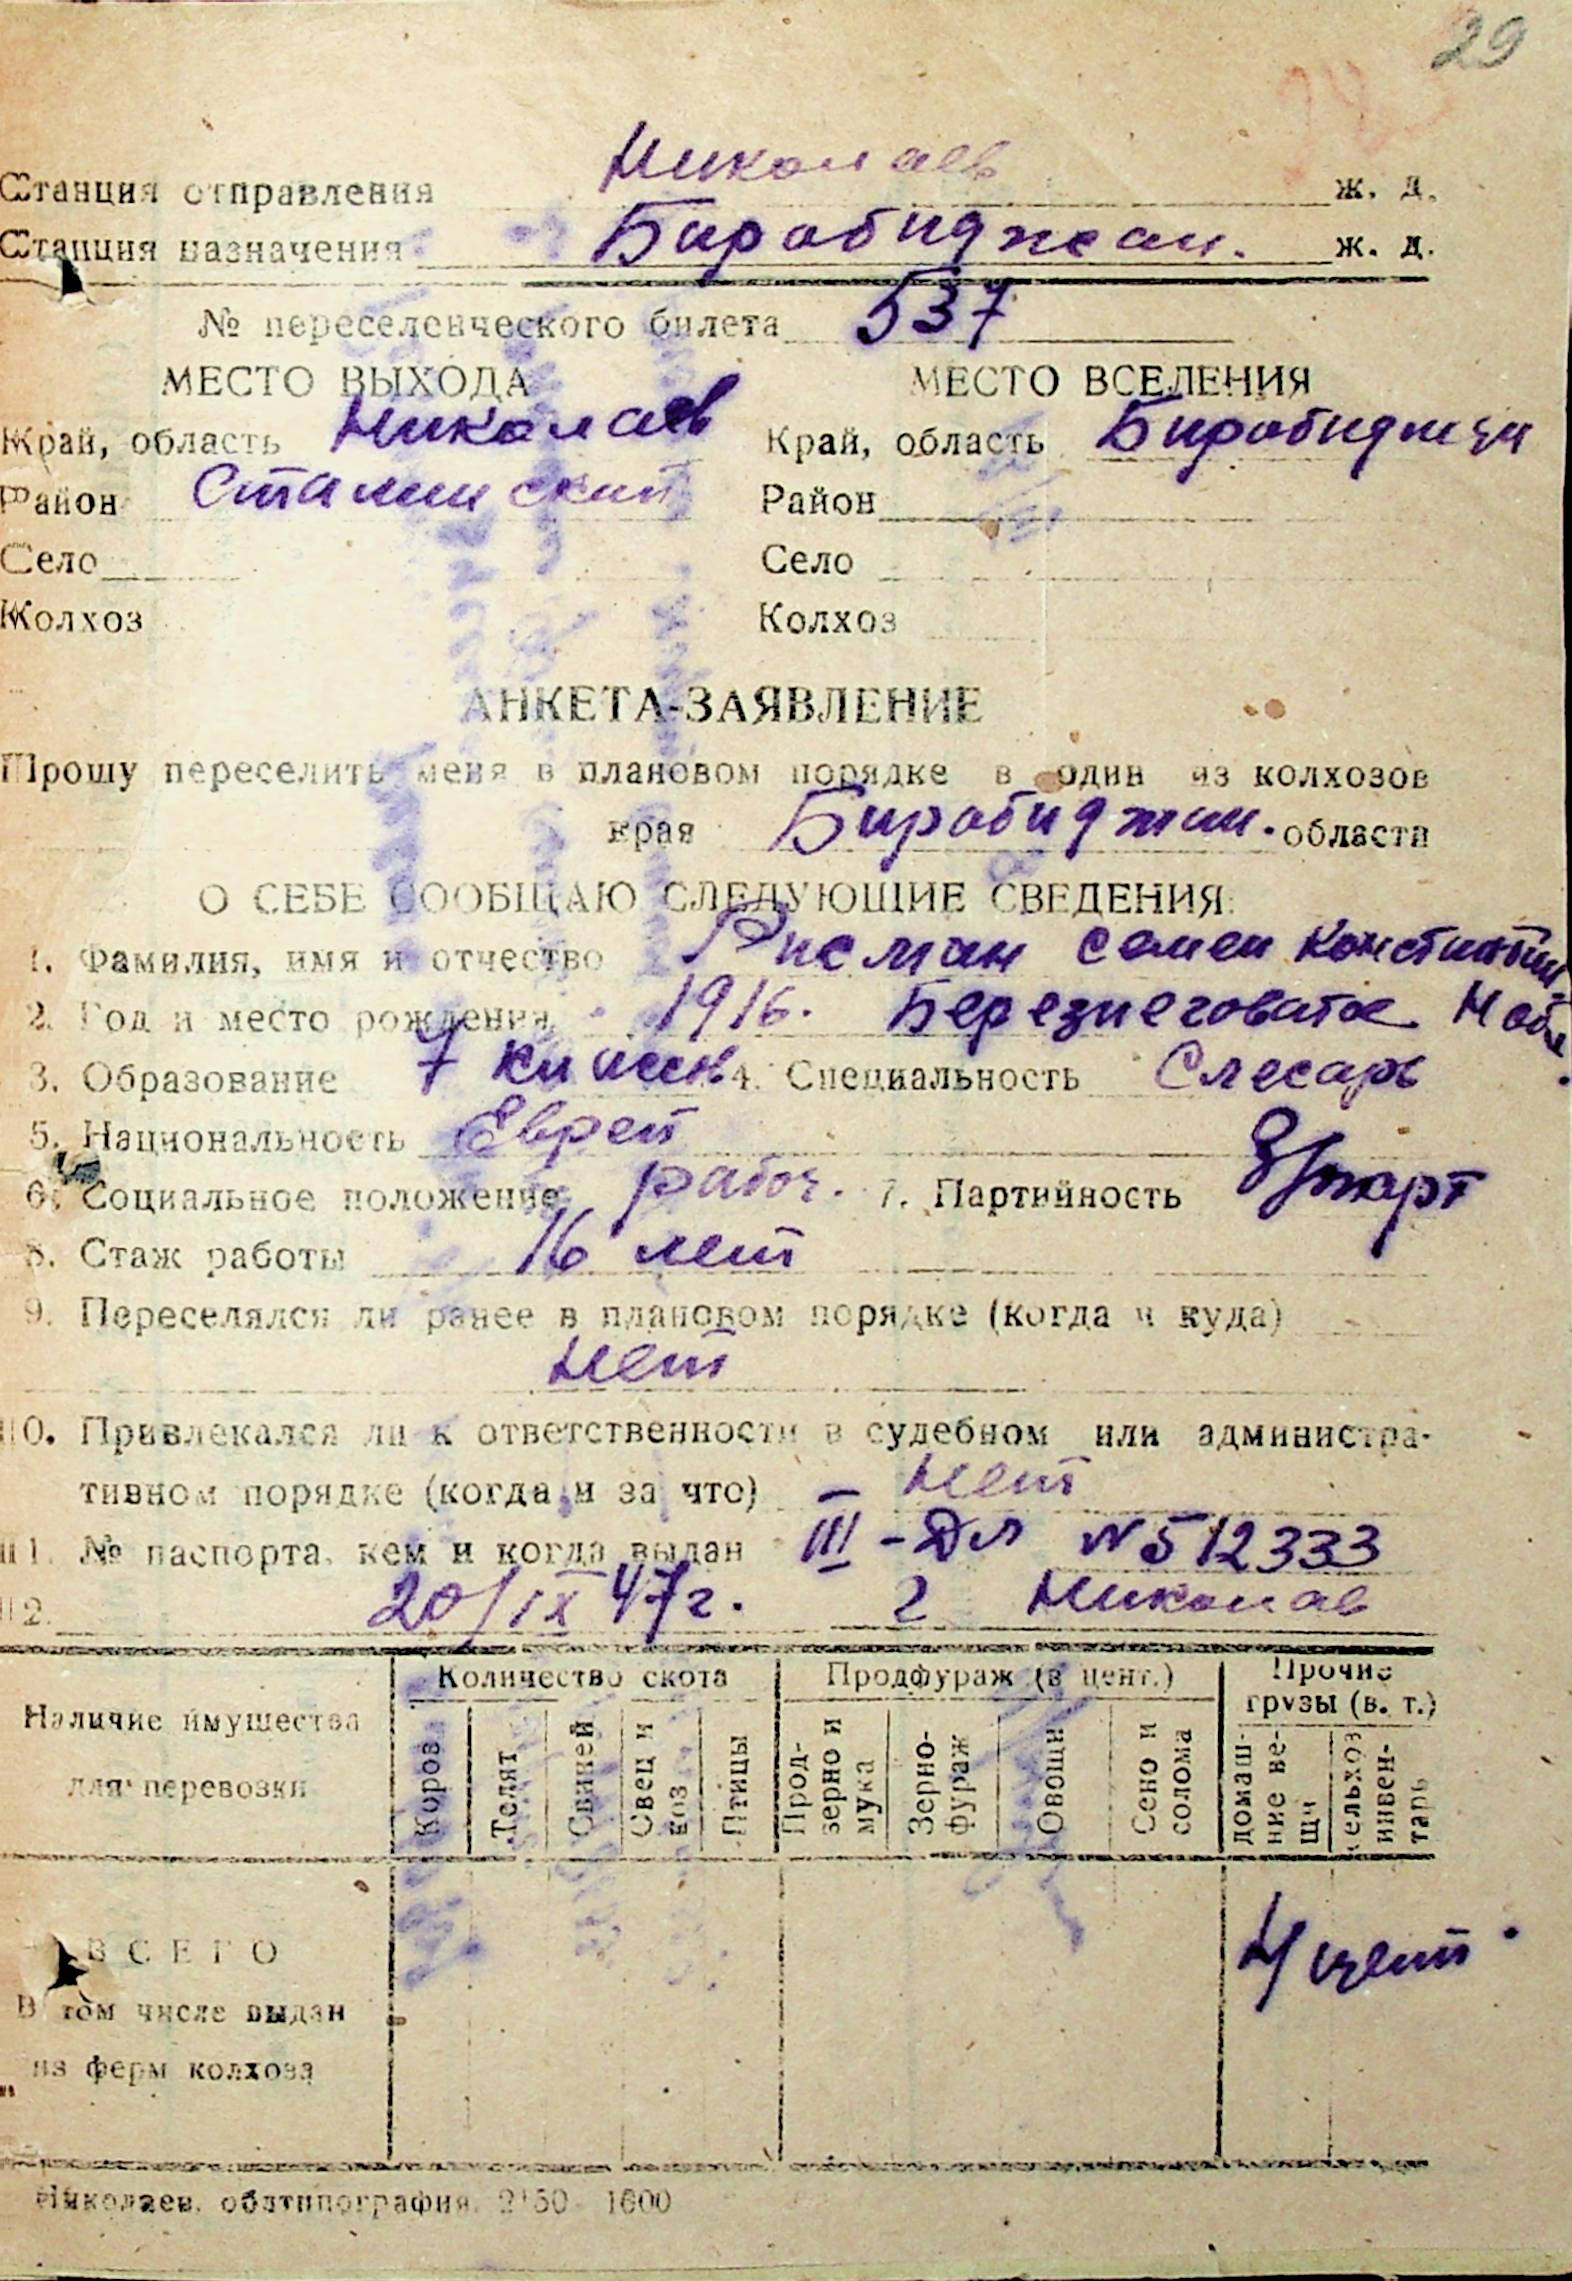 29
Станция отправления Николаев ж. д.
Станция назначения Биробиджан. ж. д.
№ переселенческого билета 537
МЕСТО ВЫХОДА МЕСТО ВСЕЛЕНИЯ
Край, область Николаев Край, область Биробиджан
Район Сталинский Район
Село Село
Колхоз Колхоз
АНКЕТА-ЗАЯВЛЕНИЕ
Прошу переселить меня в плановом порядке в один из колхозов
края Биробиджан. области
О СЕБЕ СООБЩАЮ СЛЕДУЮЩИЕ СВЕДЕНИЯ:
1. Фамилия, имя и отчество Рисман Семен Константин
2. Год и место рождения 1916. Березнеговатое
3. Образование 7 класс. 4. Специальность Слесарь
5. Национальность Еврей
6. Социальное положение рабоч. 7. Партийность
8. Стаж работы 16 лет
9. Переселялся ли ранее в плановом порядке (когда и куда)
нет
10. Привлекался ли к ответственности в судебном или администра-
тивном порядке (когда и за что) — нет
11. № паспорта, кем и когда выдан III - Дл № 512333
12. 20/IX 47 г. г Николаев
Наличие имущества для перевозки
Количество скота Продфураж (в цент.) Прочие грузы (в. т.)
Коров Телят Свиней Овец и коз Птицы Прод-зерно и мука Зерно-фураж Овощи Сено и солома домаш-ние ве-щи сельхоз инвен-тарь
ВСЕГО 4 цент.
В том числе выдан
из ферм колхоза
Николаев, облтипография 2150 1600